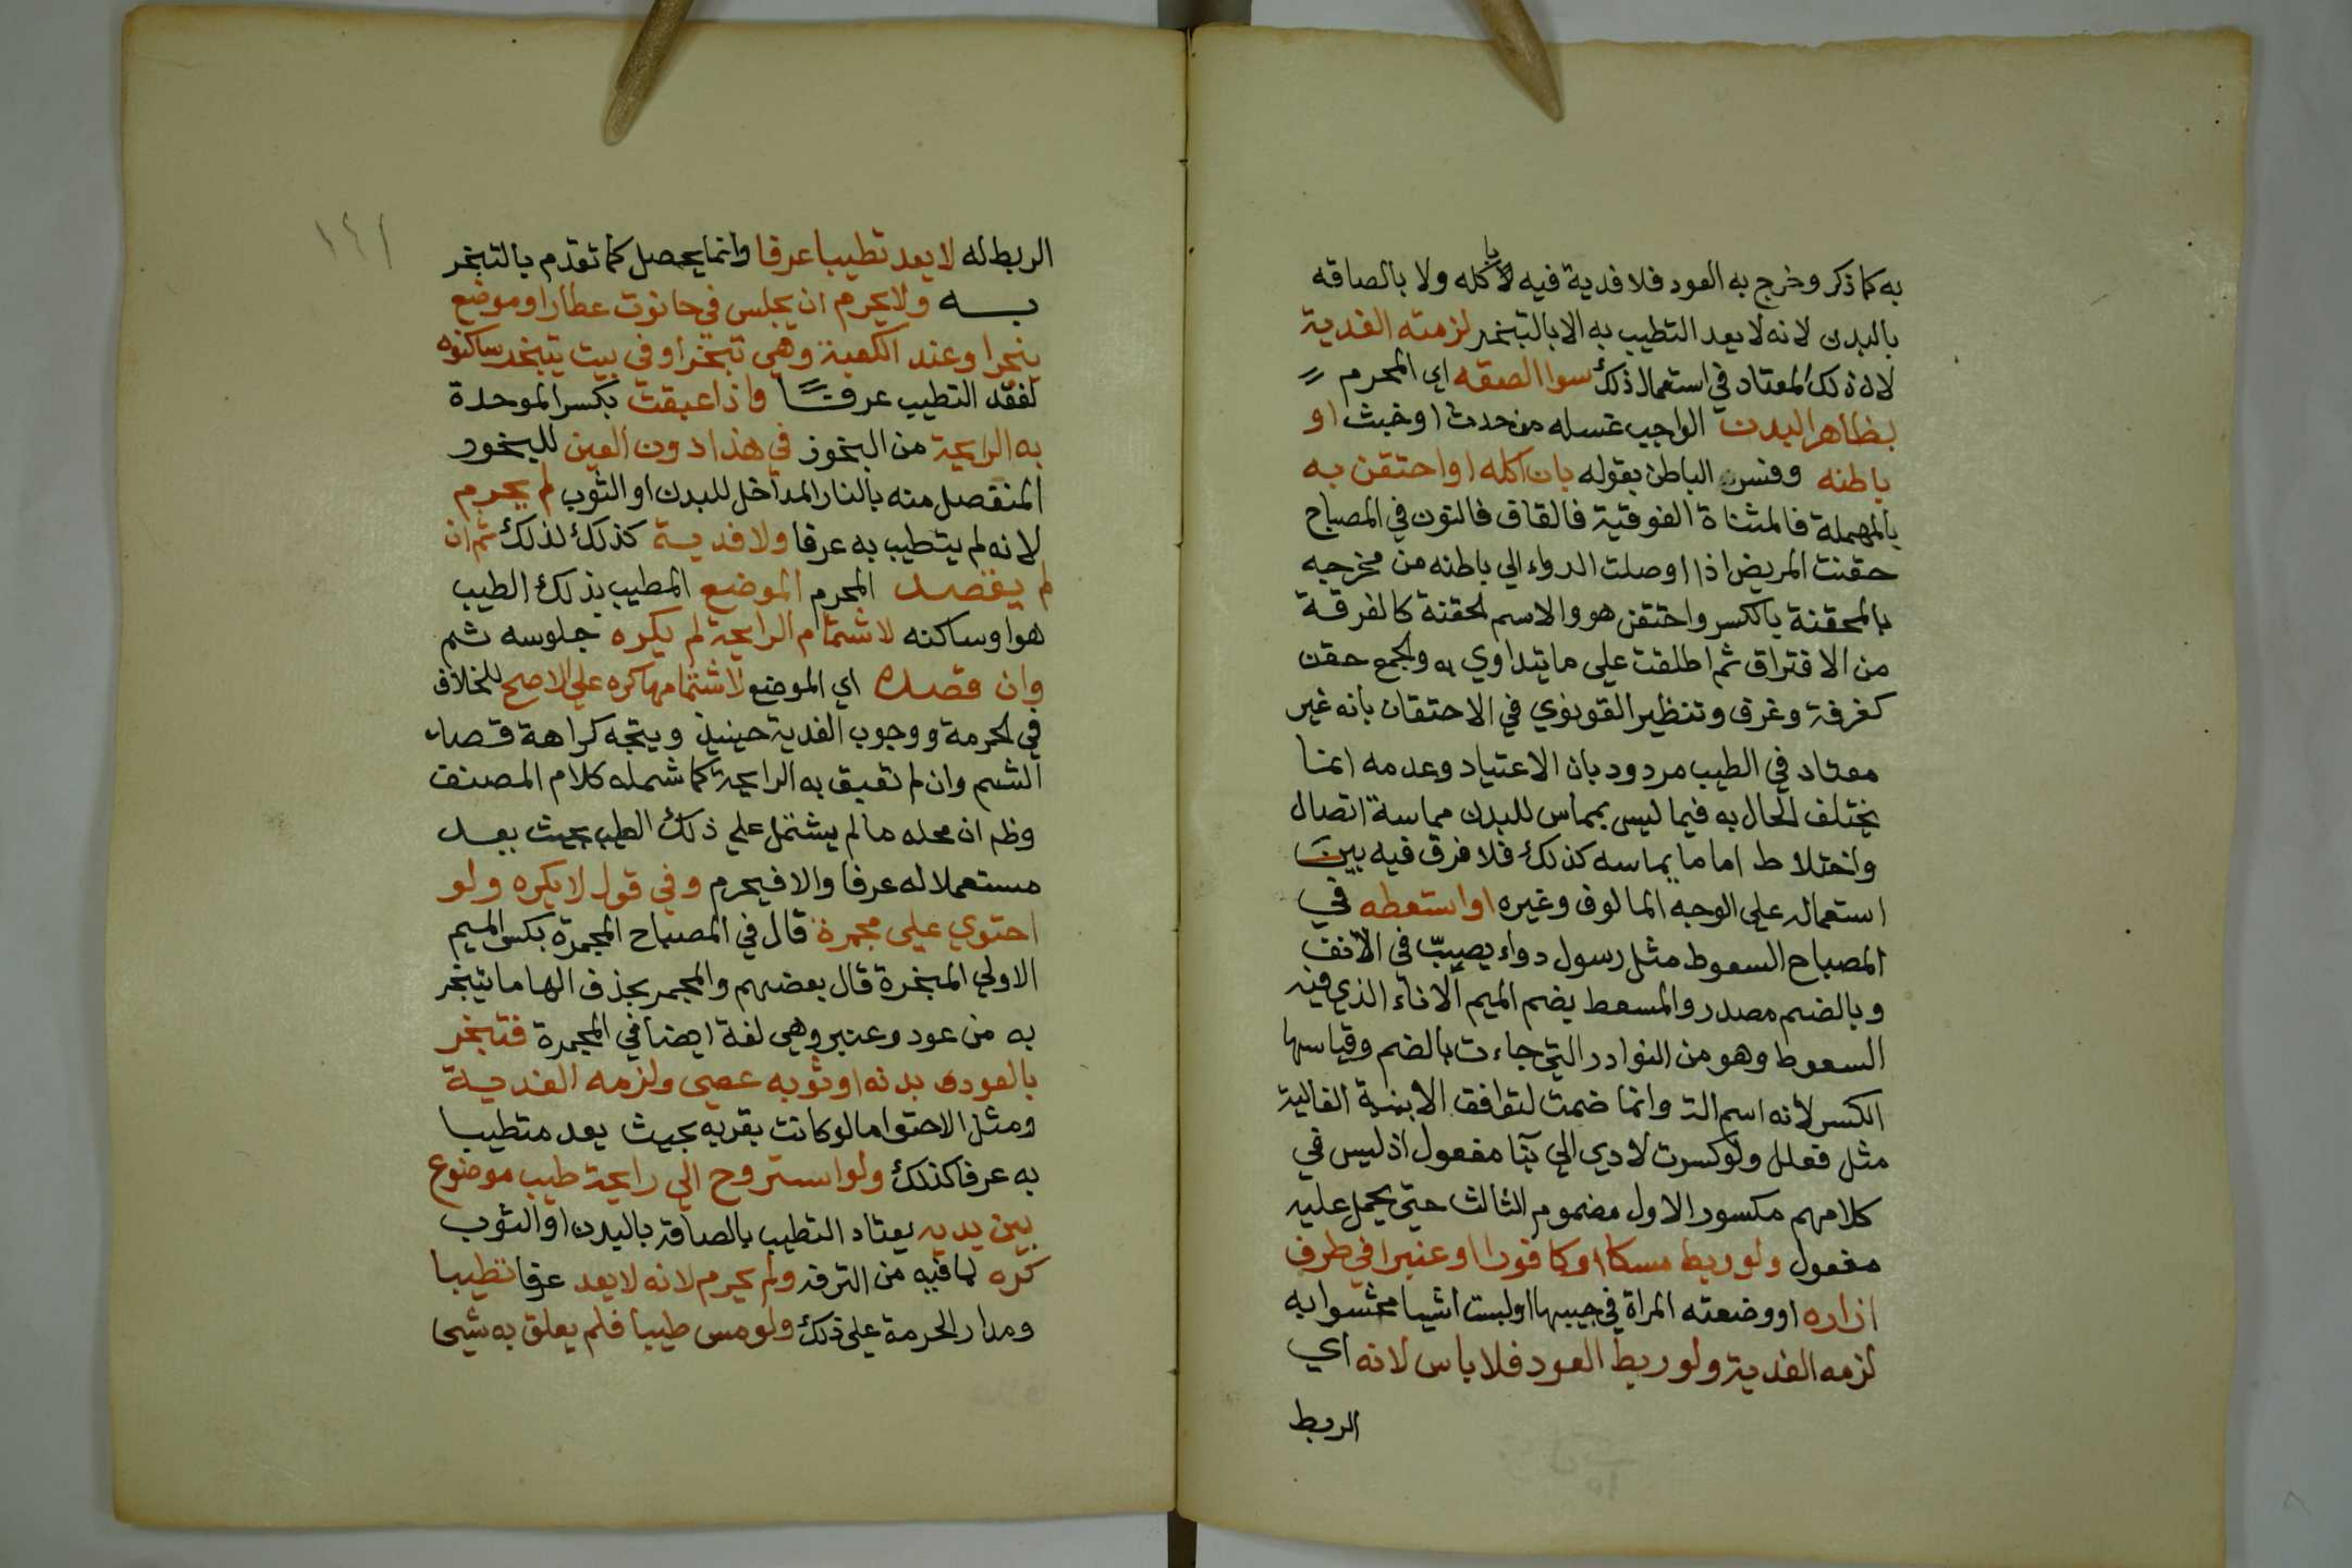 به كما ذكر وخرج به العود فلا فدية فيه لا باكله ولا بالصاقه
بالبدن لانه لا يعد التطيب به الا بالتبخر لزمته الفدية
لان ذلك المعتاد في استعمال ذلك سوا الصقه اي المحرم
بظاهر البدن الواجب غسله من حدث او خبث او
باطنه وفسر الباطن بقوله بان اكله او احتقن به
بالمهملة فالمثناة الفوقية فالقاف فالنون في المصباح
حقنت المريض اذا اوصلت الدواء الي باطنه من مخرجه
بالمحقنة بالكسر واحتقن هو والاسم الحقنة كالفرقة
من الافتراق ثم اطلقت علي ما يتداوي به والجمع حقن
كغرفة وغرف وتنظير القونوي في الاحتقان بانه غير
معتاد في الطيب مردود بان الاعتياد وعدمه انما
يختلف الحال به فيما ليس بمماس للبدن مماسة اتصال
واختلاط اما ما يماسه كذلك فلا فرق فيه بين
استعماله علي الوجه المالوف وغيره او استعطه في
المصباح السعوط مثل رسول دواء يصبّ في الانف
وبالضم مصدر والمسعط بضم الميم الاناء الذي فيه
السعوط وهو من النوادر التي جاءت بالضم وقياسها
الكسر لانه اسم الة وانما ضمت لتوافق الابنية الغالبة
مثل فعلل ولو كسرت لادي الي بنا مفعول اذ ليس في
كلامهم مكسور الاول مضموم الثالث حتي يحمل عليه
مفعول ولو ربط مسكا او كافورا او عنبرا في طرف
ازاره او وضعته المراة في جيبها او لبست اشيا محشوا به
لزمه الفدية ولو ربط العود فلا باس لانه اي
الربط
١٤١
الربط له لا يعد تطيبا عرفا وانما يحصل كما تقدم بالتبخر
به ولا يحرم ان يجلس في حانوت عطار او موضع
يبخر او عند الكعبة وهي تبخر او في بيت يتبخر ساكنوه
لفقد التطيب عرفا واذا عبقت بكسر الموحدة
به الرايحة من البخور في هذا دون العين للبخور
المنفصل منه بالنار المداخل للبدن او الثوب لم يحرم
لانه لم يتطيب به عرفا ولا فدية كذلك لذلك ثم ان
لم يقصد المحرم الموضع المطيب بذلك الطيب
هو او ساكنه لاشتمام الرايحة لم يكره جلوسه ثم
وان قصده اي الموضع لاشتمامها كره علي الاصح للخلاف
في الحرمة ووجوب الفدية حينيذ ويتجه كراهة قصد
الشم وان لم تعبق به الرايحة كما شمله كلام المصنف
وظم ان محله ما لم يشتمل علي ذلك الطيب بحيث يعد
مستعملا له عرفا والا فيحرم وفي قول لا يكره ولو
احتوي علي مجمرة قال في المصباح المجمرة بكسر الميم
الاولي المبخرة قال بعضهم والمجمر بحذف الها ما يتبخر
به من عود وعنبر وهي لغة ايضا في المجمرة فتبخر
بالعود بدنه او ثوبه عصي ولزمه الفدية
ومثل الاحتوا ما لو كانت بقربه بحيث يعد متطيبا
به عرفا كذلك ولو استروح الي رايحة طيب موضوع
بين يديه يعتاد التطيب بالصاقه بالبدن او الثوب
كره لما فيه من الترفه ولم يحرم لانه لا يعد عرفا تطيبا
ومدار الحرمة علي ذلك ولو مس طيبا فلم يعلق به شي